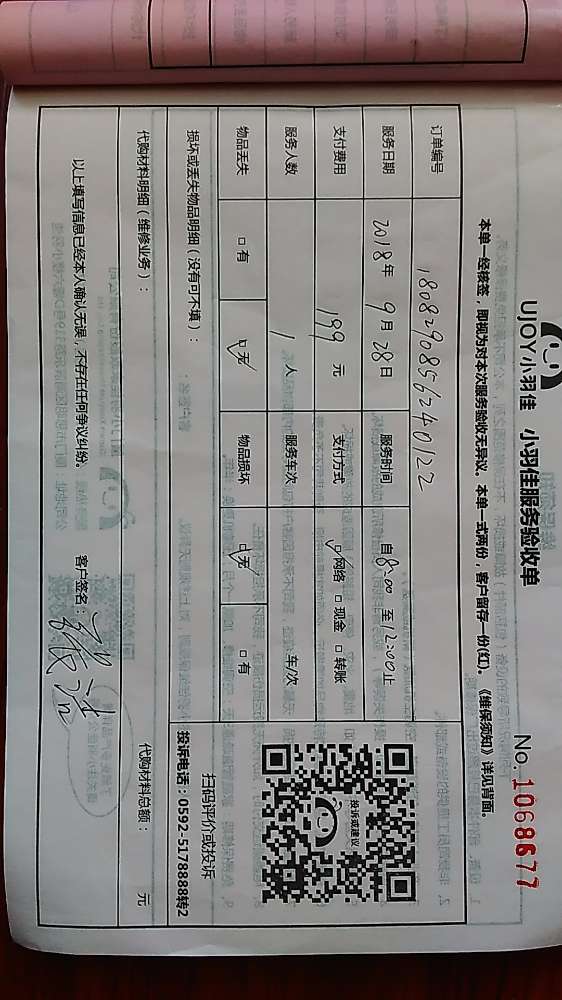 UJOY小羽佳 小羽佳服务验收单
No. 1068677
本单一经核签，即视为对本次服务验收无异议。本单一式两份，客户留存一份(红)。《维保须知》详见背面。
订单编号 1808290856240122
服务日期 2018年9月28日 服务时间 自8:00至12:00止
支付费用 199元 支付方式 ☑网络 □现金 □转账
服务人数 1人 服务车次 车/次
物品丢失 □有 ☑无 物品损坏 ☑无 □有
投诉或建议
扫码评价或投诉
投诉电话：0592-5178888转2
损坏或丢失物品明细（没有可不填）：
代购材料明细（维修业务）： 代购材料总额： 元
以上填写信息已经本人确认无误，不存在任何争议纠纷。 客户签名：